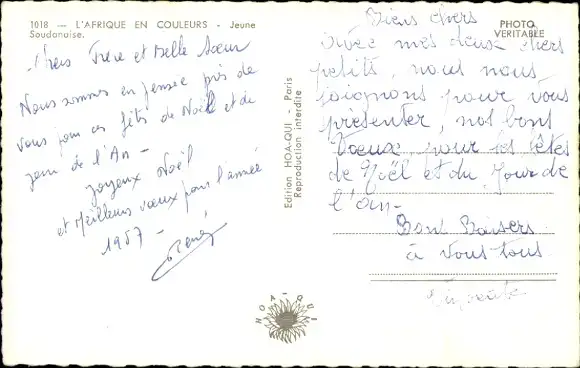 1018 — L'AFRIQUE EN COULEURS - Jeune
Soudanaise.
Chers Frère et Belle Sœur
Nous sommes en pensée près de
vous pour ces fêtes de Noël et du
jour de l'An -
Joyeux Noël
et Meilleurs vœux pour l'année
1957 -
René
Edition HOA-QUI - Paris
Reproduction interdite
HOA-QUI
PHOTO
VERITABLE
Biens chers
Avec mes deux chers
petits, nous nous
joignons pour vous
présenter, nos bons
Voeux pour les fêtes
de Noël et du Jour de
l'An-
Bons Baisers
à vous tous